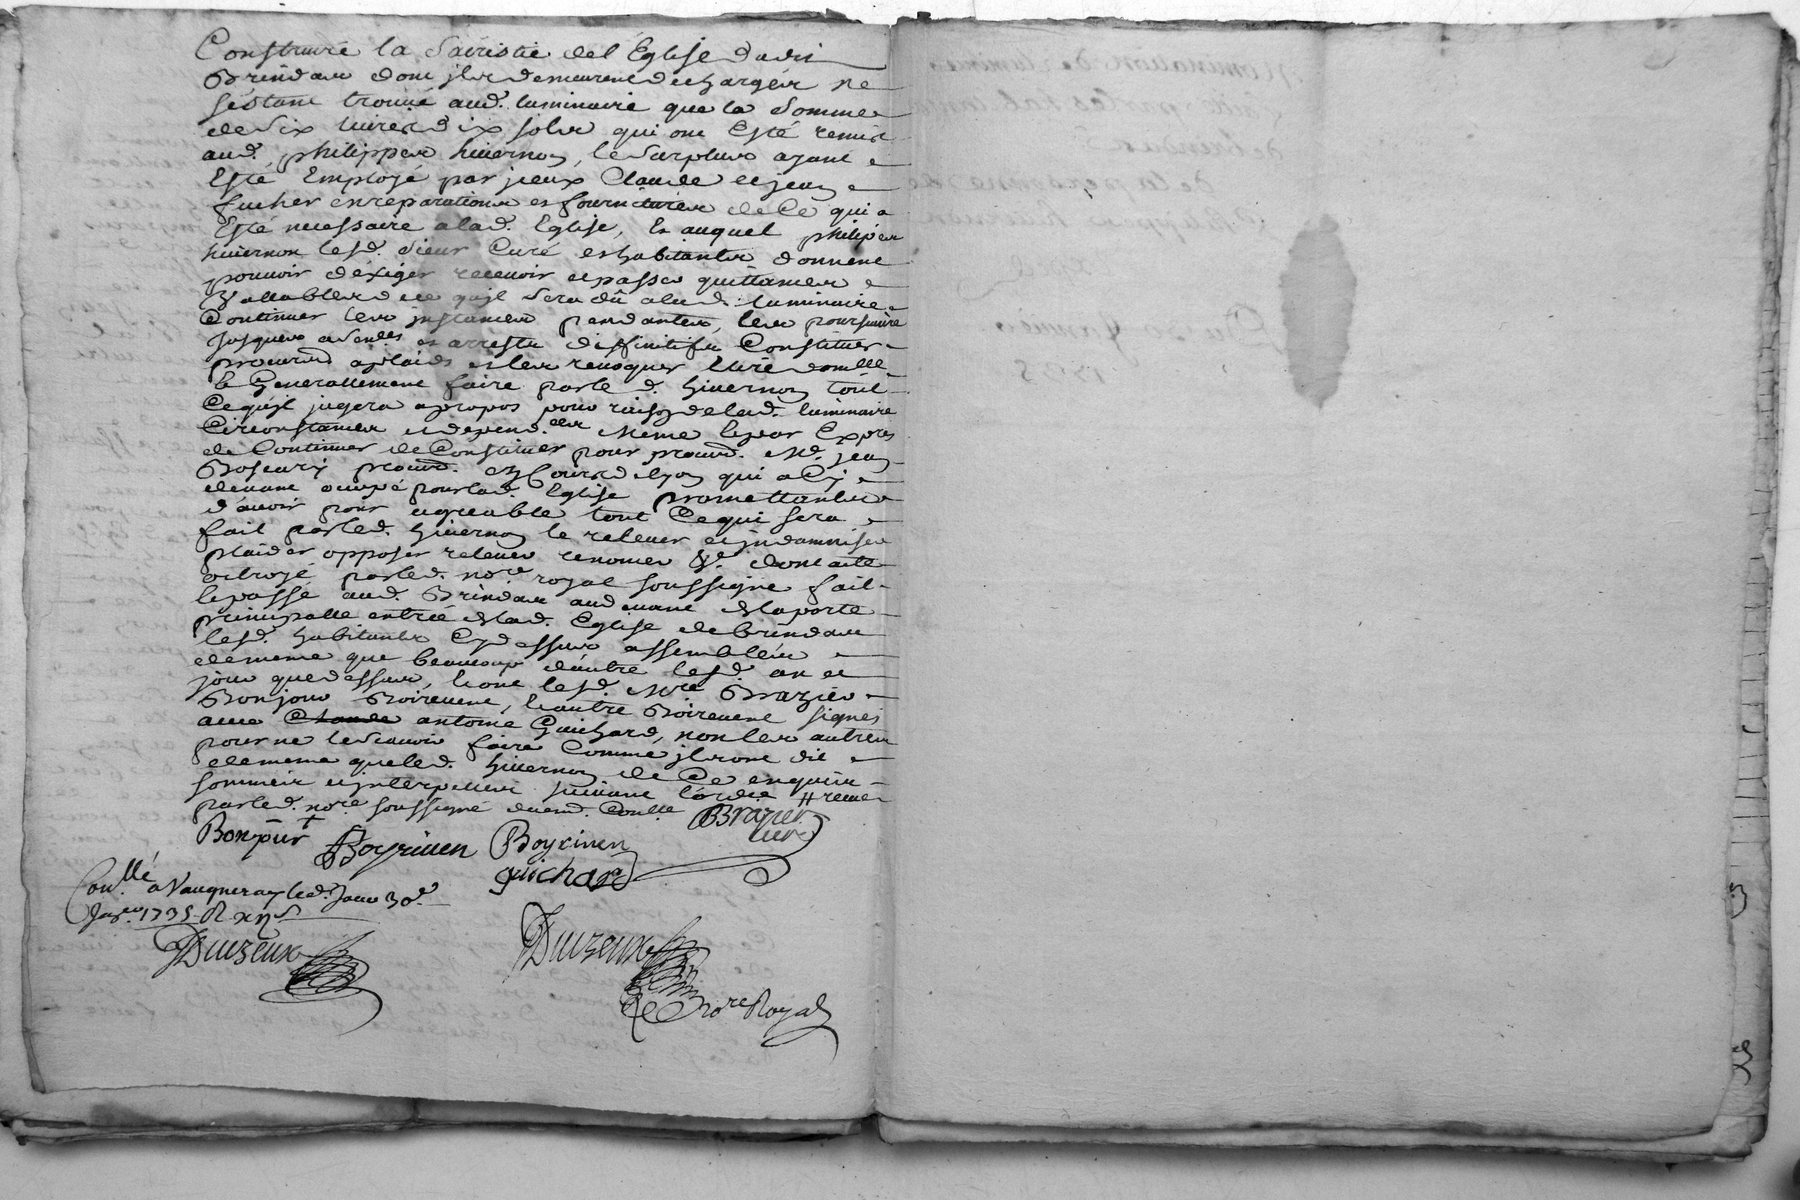 Construire la Sacristie de l Eglise dudit
Brindas dont jls demeurent dechargés ne
s'estant trouvé aud. luminaire que la Somme
de Six livres dix sols qui ont Esté remis
aud. philippes hivernon, le Surplus ayant
Esté Employé par jceux Claude et jean
fucher en reparations et fournitures de Ce qui a
Esté necessaire a lad. Eglise, Et auquel philipes
hivernon lesd. Sieur Curé et habitants donnent
pouvoir d'éxiger recevoir et passer quittances
Vallables de ce qu'jl Sera dû aud. luminaire
Continuer les jnstances pendantes, les poursuivre
jusques a Sences et arrests diffinitifs Constituer
procureurs a plaids et les revoquer Elire domlle
Et Generallement faire par led. hivernon tout
Ce qu'jl jugera apropos pour raison de lad. luminaire
Circonstances et depend.ces Meme Expres
de Continuer de Constituer pour procur. Md. jean
procur. Es Cours de lyon qui a Cy
devant ocupé pour lad. Eglise promettants
d'avoir pour agreable tout Ce qui sera
fait par led. hivernon le relever et jndamniser
plaider opposer relever renoncer &c. dont acte
octroyé par led. nore royal soussigné fait
et passé aud. Brindas audevant de la porte
principalle entrée de lad. Eglise de brindas
lesd. habitants Cy dessus assemblés
de meme que beaucoup d'autre lesd. an et
jour que dessus, Et ont lesd. Mre Brazier
Bonjour Boirivent, Et autre Boirivent signés
avec Claude antoine Guichard, non les autres
pour ne le Scavoir faire Comme jls ont dit
de meme que led. hivernon de Ce enquis
sommés et jnterpellés suivant l'ordce
par led. nore soussigné
Brazier
curé
Bonjour Boyriven Boyriven
guichard
Con.llé a Vaugneray led. Jour 30e
Janv. 1735 R
Duizeux Duizeux
Nore Royal